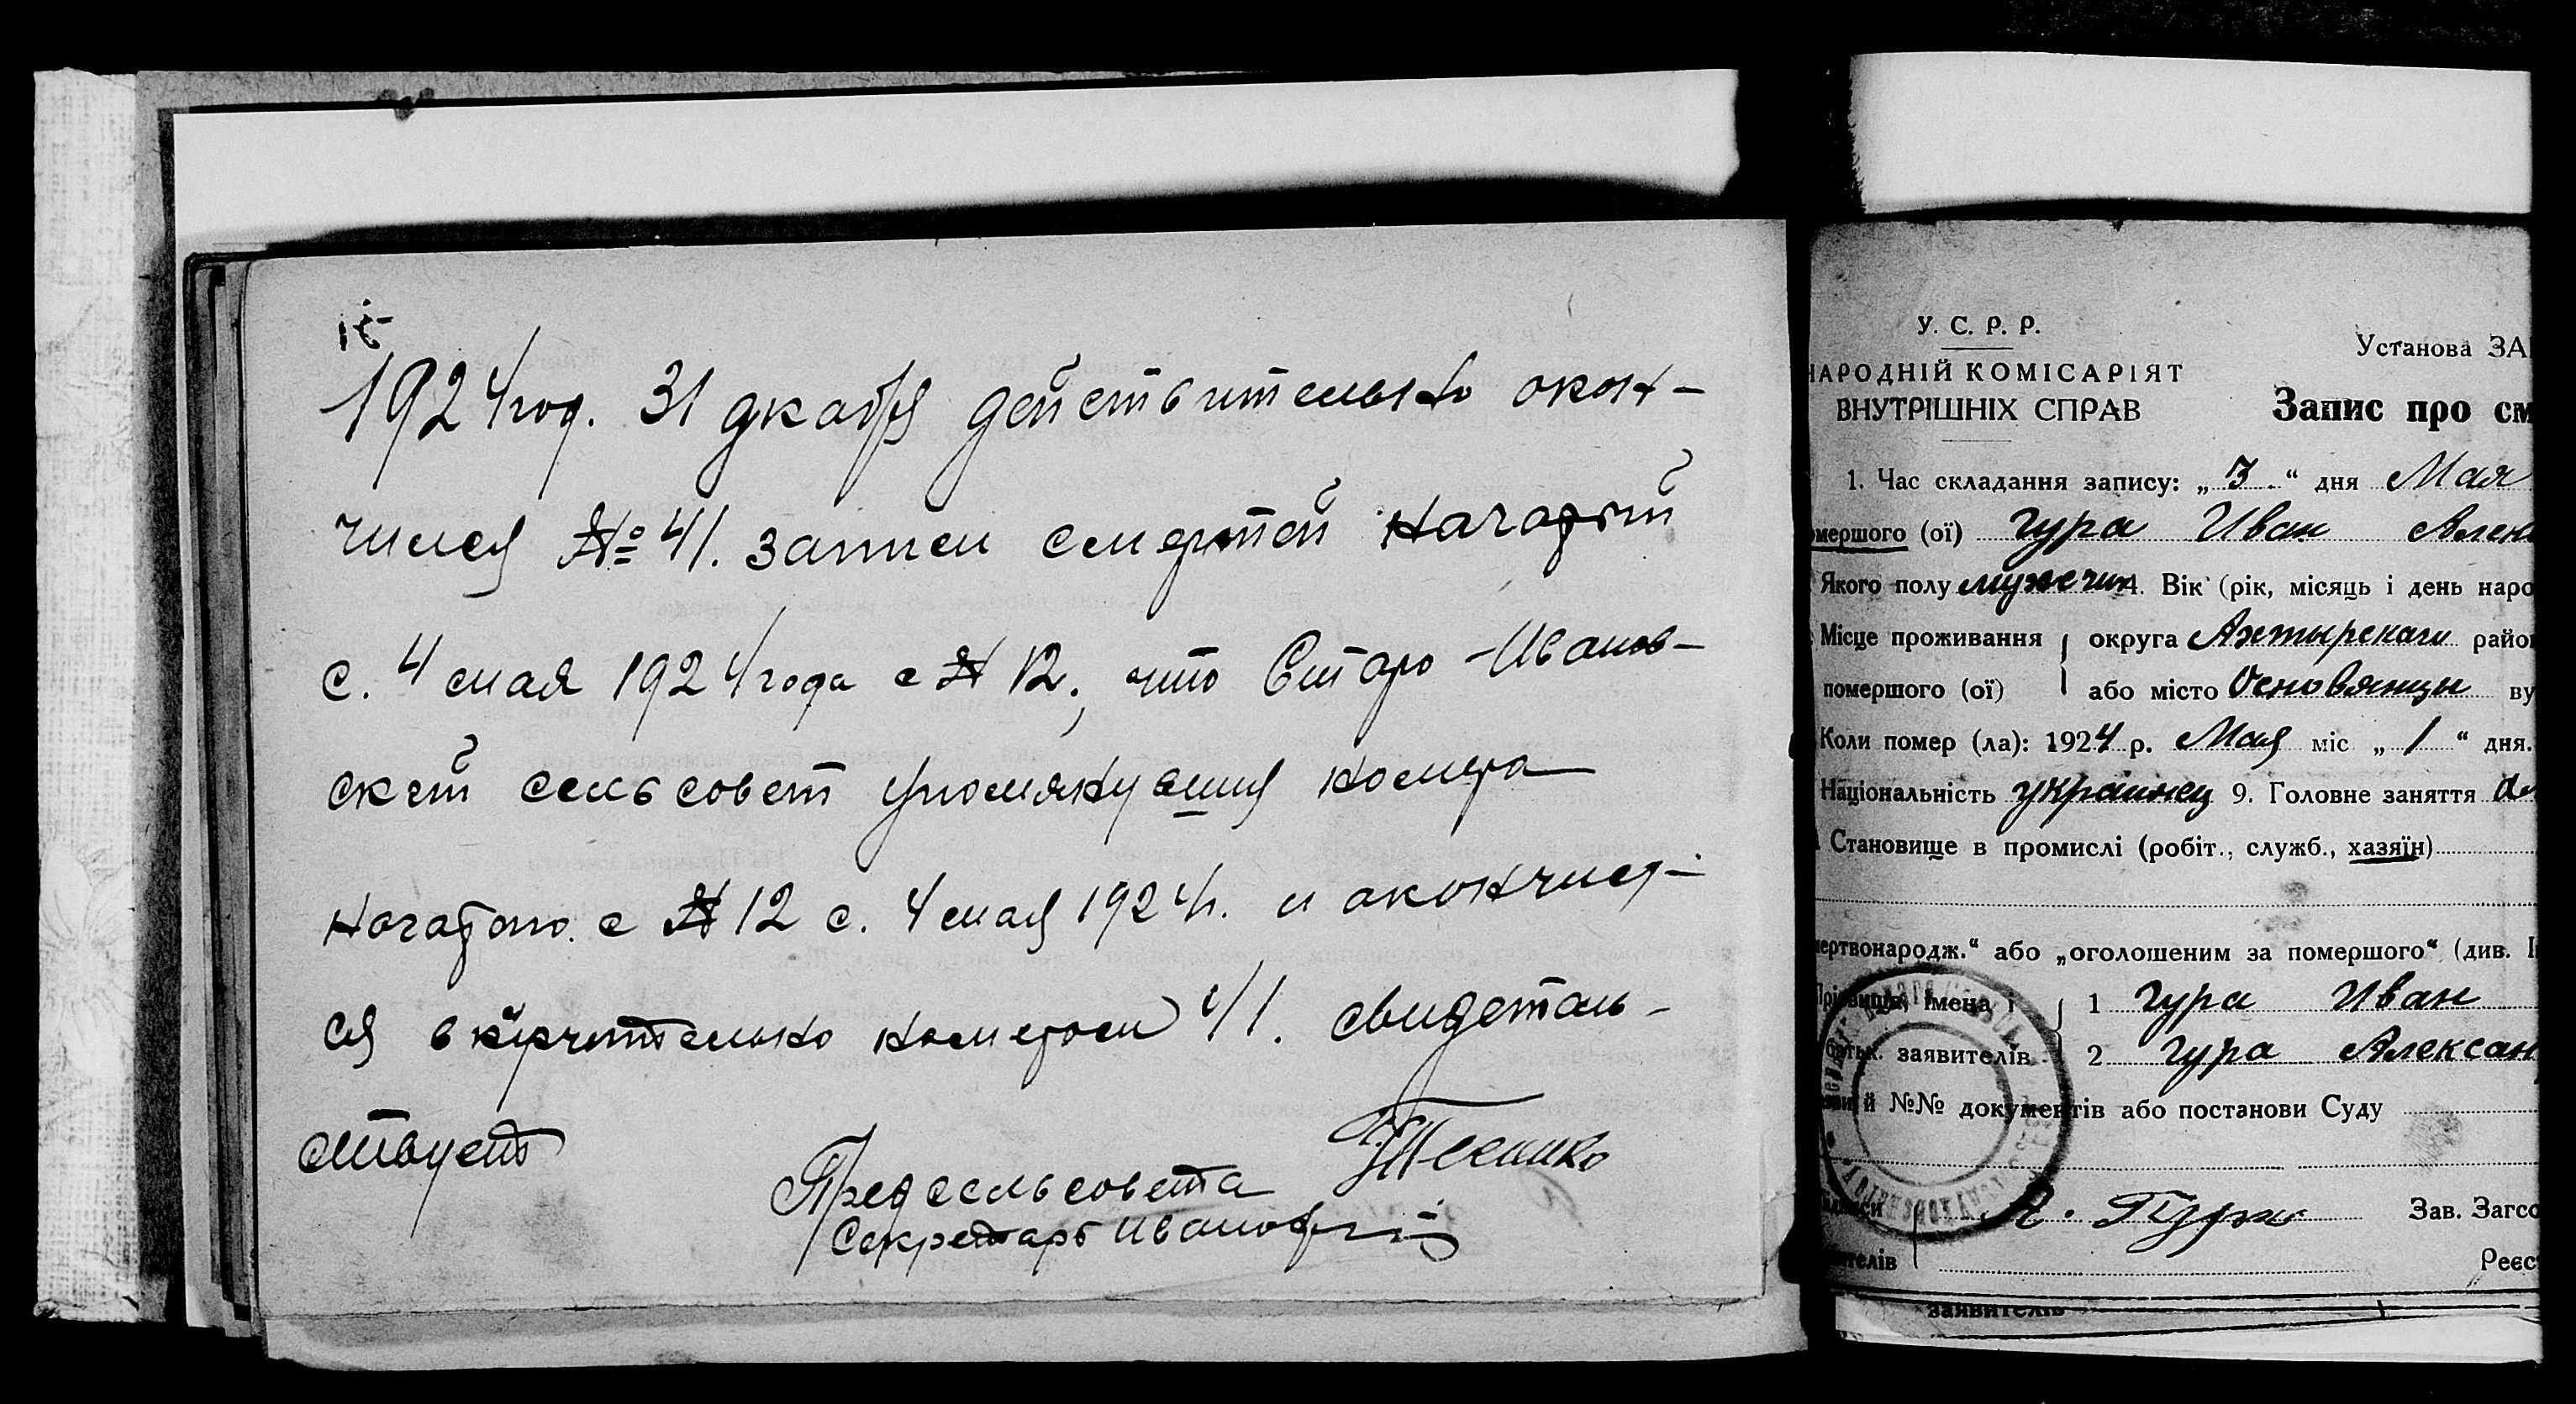 1924 год. 31 дкабря действительно окон-
чился № 41. записи смертей начатый
с. 4 мая 1924 года с № 12., что Старо-Иванов-
ский сельсовет упомянувшия номера
начатого. с № 12 с. 4 мая 1924 г. и акончил-
ся вкрчительно номером 41. свидетель-
ствует
Пред сельсовета
Секретарь
У. С. Р. Р.
НАРОДНІЙ КОМІСАРІЯТ
ВНУТРІШНІХ СПРАВ
Установа ЗА
Запис про см
1. Час складання запису: „ 3 . “ дня Мая
омершого (ої) Гура Иван Алек
Якого полу мужчин 4. Вік (рік, місяць і день наро
Місце проживання { округа Ахтырскаго райо
помершого (ої) { або місто Основянцы ву
Коли помер (ла): 1924 р. Мая міс „ 1 “ дня.
Національність украінец 9. Головне заняття
Становище в промислі (робіт., служб., хазяїн)
мертвонародж.“ або „оголошеним за помершого“ (див. І
імена і } 1 Гура Иван
батьк. заявителів } 2 Гура Алексан
й №№ документів або постанови Суду
А. Гура Зав. Загсо
телів Реєс
заявителів